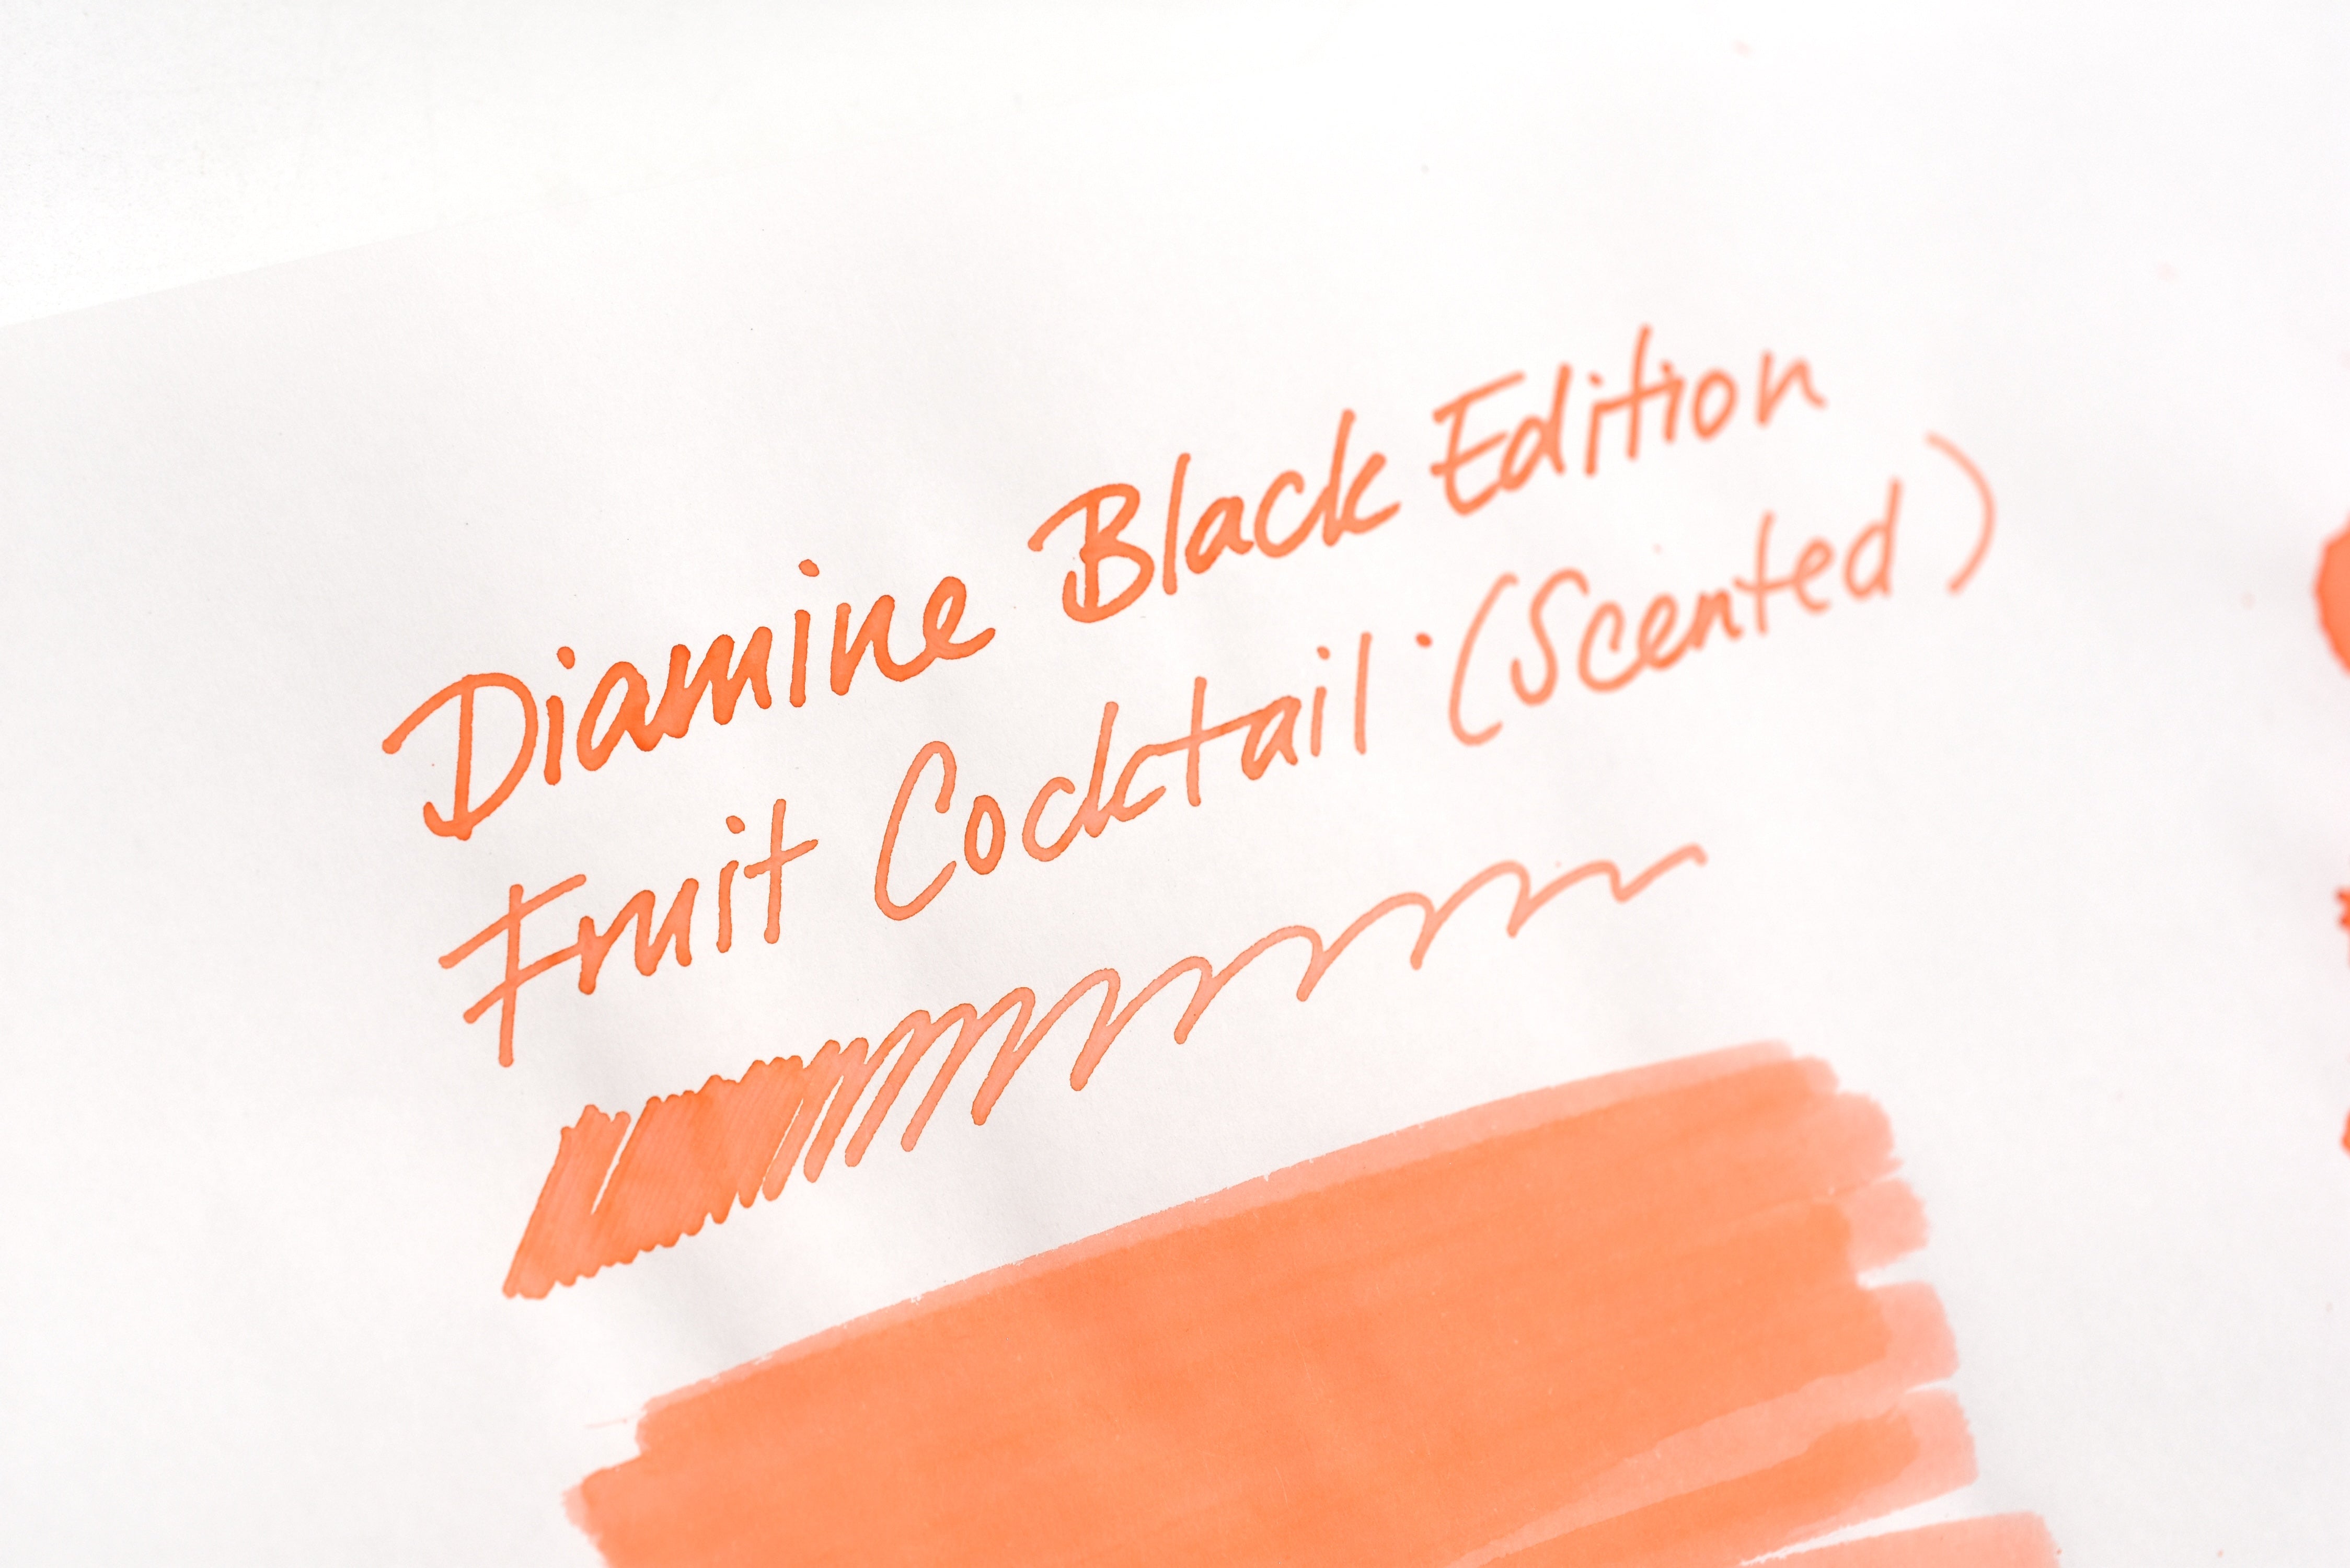 Diamine Black Edition
Fruit Cocktail (Scented)